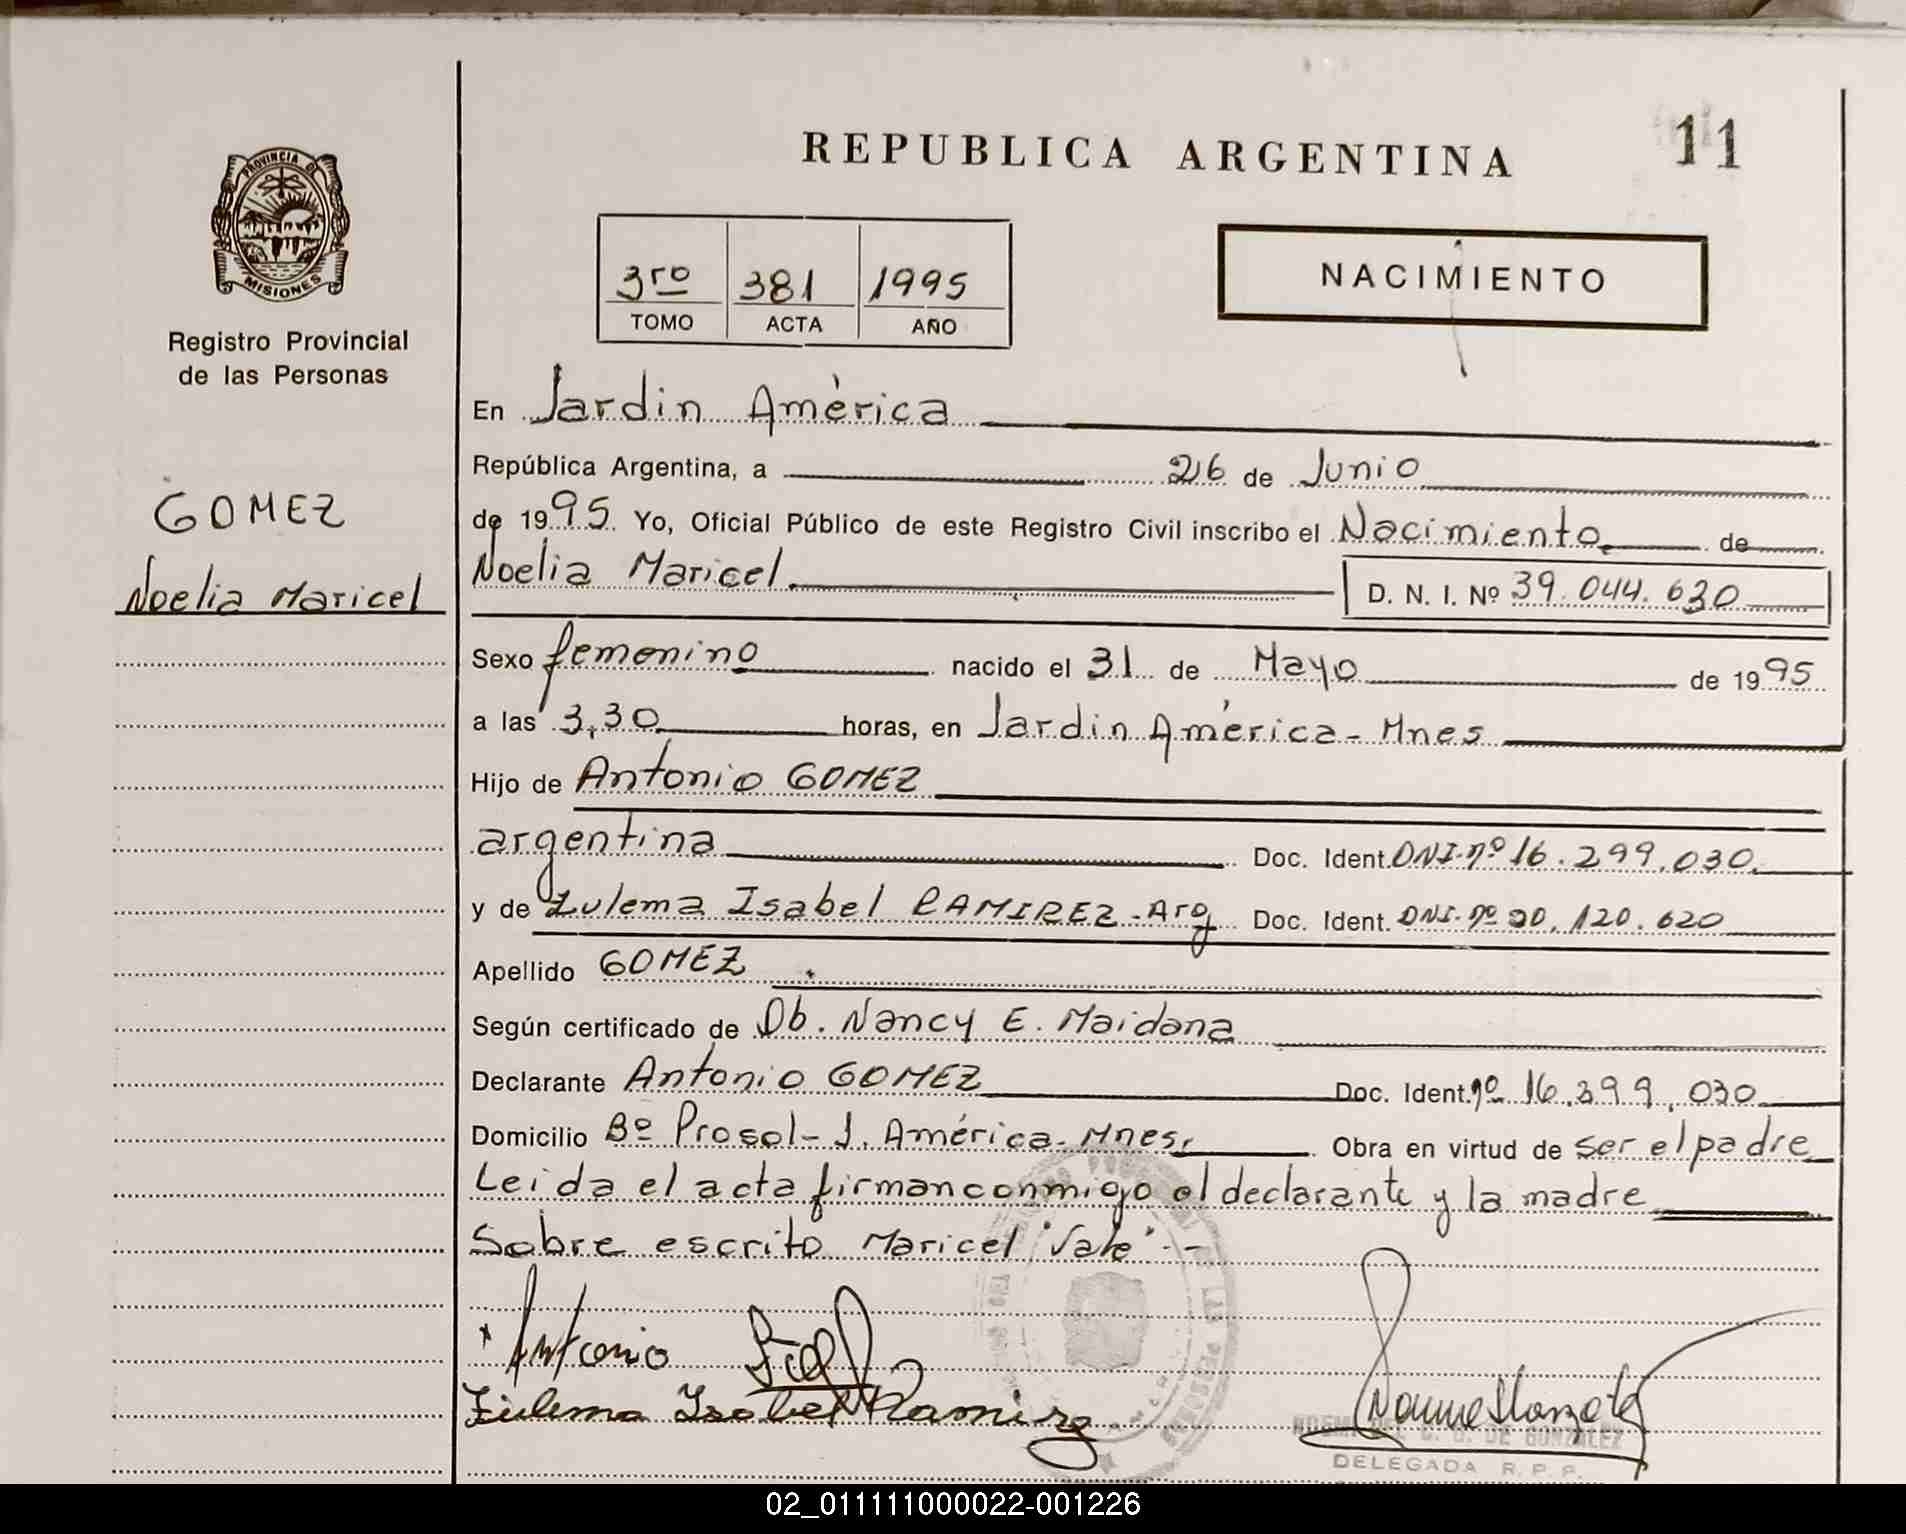 REPUBLICA ARGENTINA
11
PROVINCIA DE
MISIONES
Registro Provincial
de las Personas
3ro 381 1995
TOMO ACTA AÑO
NACIMIENTO
GOMEZ
Noelia Maricel
En Jardin América
República Argentina, a 26 de Junio
de 1995. Yo, Oficial Público de este Registro Civil inscribo el Nacimiento de
Noelia Maricel D. N. I. Nº 39.044.630
Sexo femenino nacido el 31 de Mayo de 1995
a las 3,30 horas, en Jardin América - Mnes
Hijo de Antonio GOMEZ
argentina Doc. Ident. DNI-nº 16.299.030.
y de Zulema Isabel RAMIREZ - Arg Doc. Ident. DNI-nº 20.120.620
Apellido GOMEZ
Según certificado de Ob. Nancy E. Maidana
Declarante Antonio GOMEZ Doc. Ident. nº 16.399.030
Domicilio Bº Prosol - J. América - Mnes. Obra en virtud de ser el padre
Leida el acta firman conmigo el declarante y la madre
Sobre escrito Maricel "Vale" - -
Antonio
Zulema Isabel Ramirez
DE GONZALEZ
DELEGADA R. P. P.
02_011111000022-001226